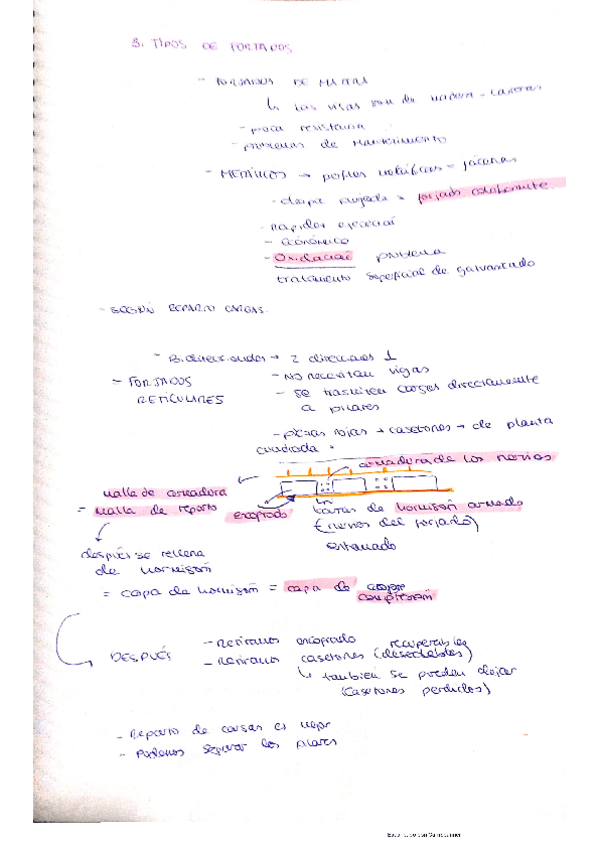 3. TIPOS DE FORJADOS
- FORJADOS DE MADERA
↳ las vigas son de madera -
- poca resistencia
- problemas de mantenimiento
- METÁLICOS → perfiles metálicos = jácenas
- chapa plegada = forjado colaborante
- rápidos ejecución
- económico
- Oxidación problema
tratamiento superficial de galvanizado
- SEGÚN REPARTO CARGAS.
- Bidireccionales → 2 direcciones ⊥
- FORJADOS RETICULARES
- NO necesitan vigas
- se trasmiten cargas directamente
a pilares
- piezas → casetones → de planta
cuadrada
armadura de los nervios
malla de armadura
= malla de reparto
encofrado
barras de hormigón armado
(nervios del forjado)
entramado
después se rellena
de hormigón
= capa de hormigón = capa de compresión
DESPUÉS
- Retiramos encofrado
- Retiramos casetones (desechables)
recuperables
↳ también se pueden dejar
(casetones perdidos)
- Reparto de cargas es mejor
- Podemos separar los pilares